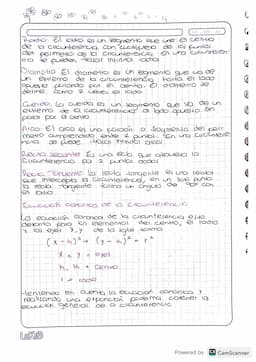 Radio: El radio es un segmento que une el centro
de la circunferencia con cualquiera de los puntos
del perimetro de la circunferencia. En una circunferen
cia se pueden trazar infinitos radios
Diametro: El diametro es un segmento que va de
un extremo de la circunferencia hasta el lado
opuesto pasando por el centro. El diametro se
define como 2 veces el radio
Cuerda: La cuerda es un segmento que va de un
extremo de la circunferencia al lado opuesto sin
pasar por el centro
Arco: El arco es una porción o fragmento del perí
metro comprendido entre 2 puntos. En una circunfere
ncia se puede trazar infinitos arcos
Recta secante: Es una recta que atraviesa la
circunferencia por 2 puntos
Recta Tangente: La recta tangente es una recta
que intercepta la circunferencia en un solo punto
la recta tangente forma un angulo de 90° con
el radio
Ecuación canónica de la circunferencia
La ecuación canonica de la circunferencia esta
por los elementos del centro, el radio
y los ejes x, y de la sgte forma
(x-h)² + (y-k)² = r²
x, y = ejes
h, k = centro
r = radio
teniendo en cuenta la ecuación canonica y
realizando una expansión podemos obtener la
ecuación general de a circunferencia
Powered by CS CamScanner